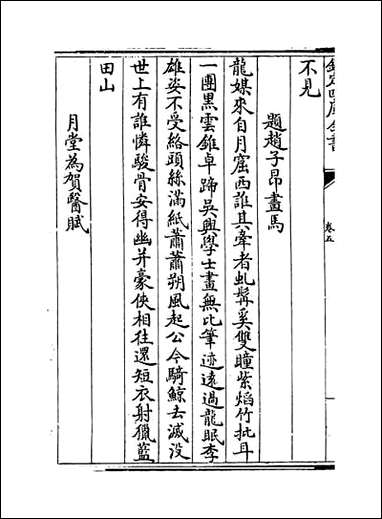 欽定四庫全書
卷五
不見
題趙子昂畫馬
龍媒來自月窟西誰其牽者虬髯奚雙瞳紫熖竹批耳
一團黒雲錐卓蹄吳興學士畫無比筆迹逺過龍眠李
雄姿不受絡頭絲滿紙蕭蕭朔風起公今騎鯨去滅沒
世上有誰憐駿骨安得幽并豪俠相往還短衣射獵藍
田山
月堂為賀醫賦